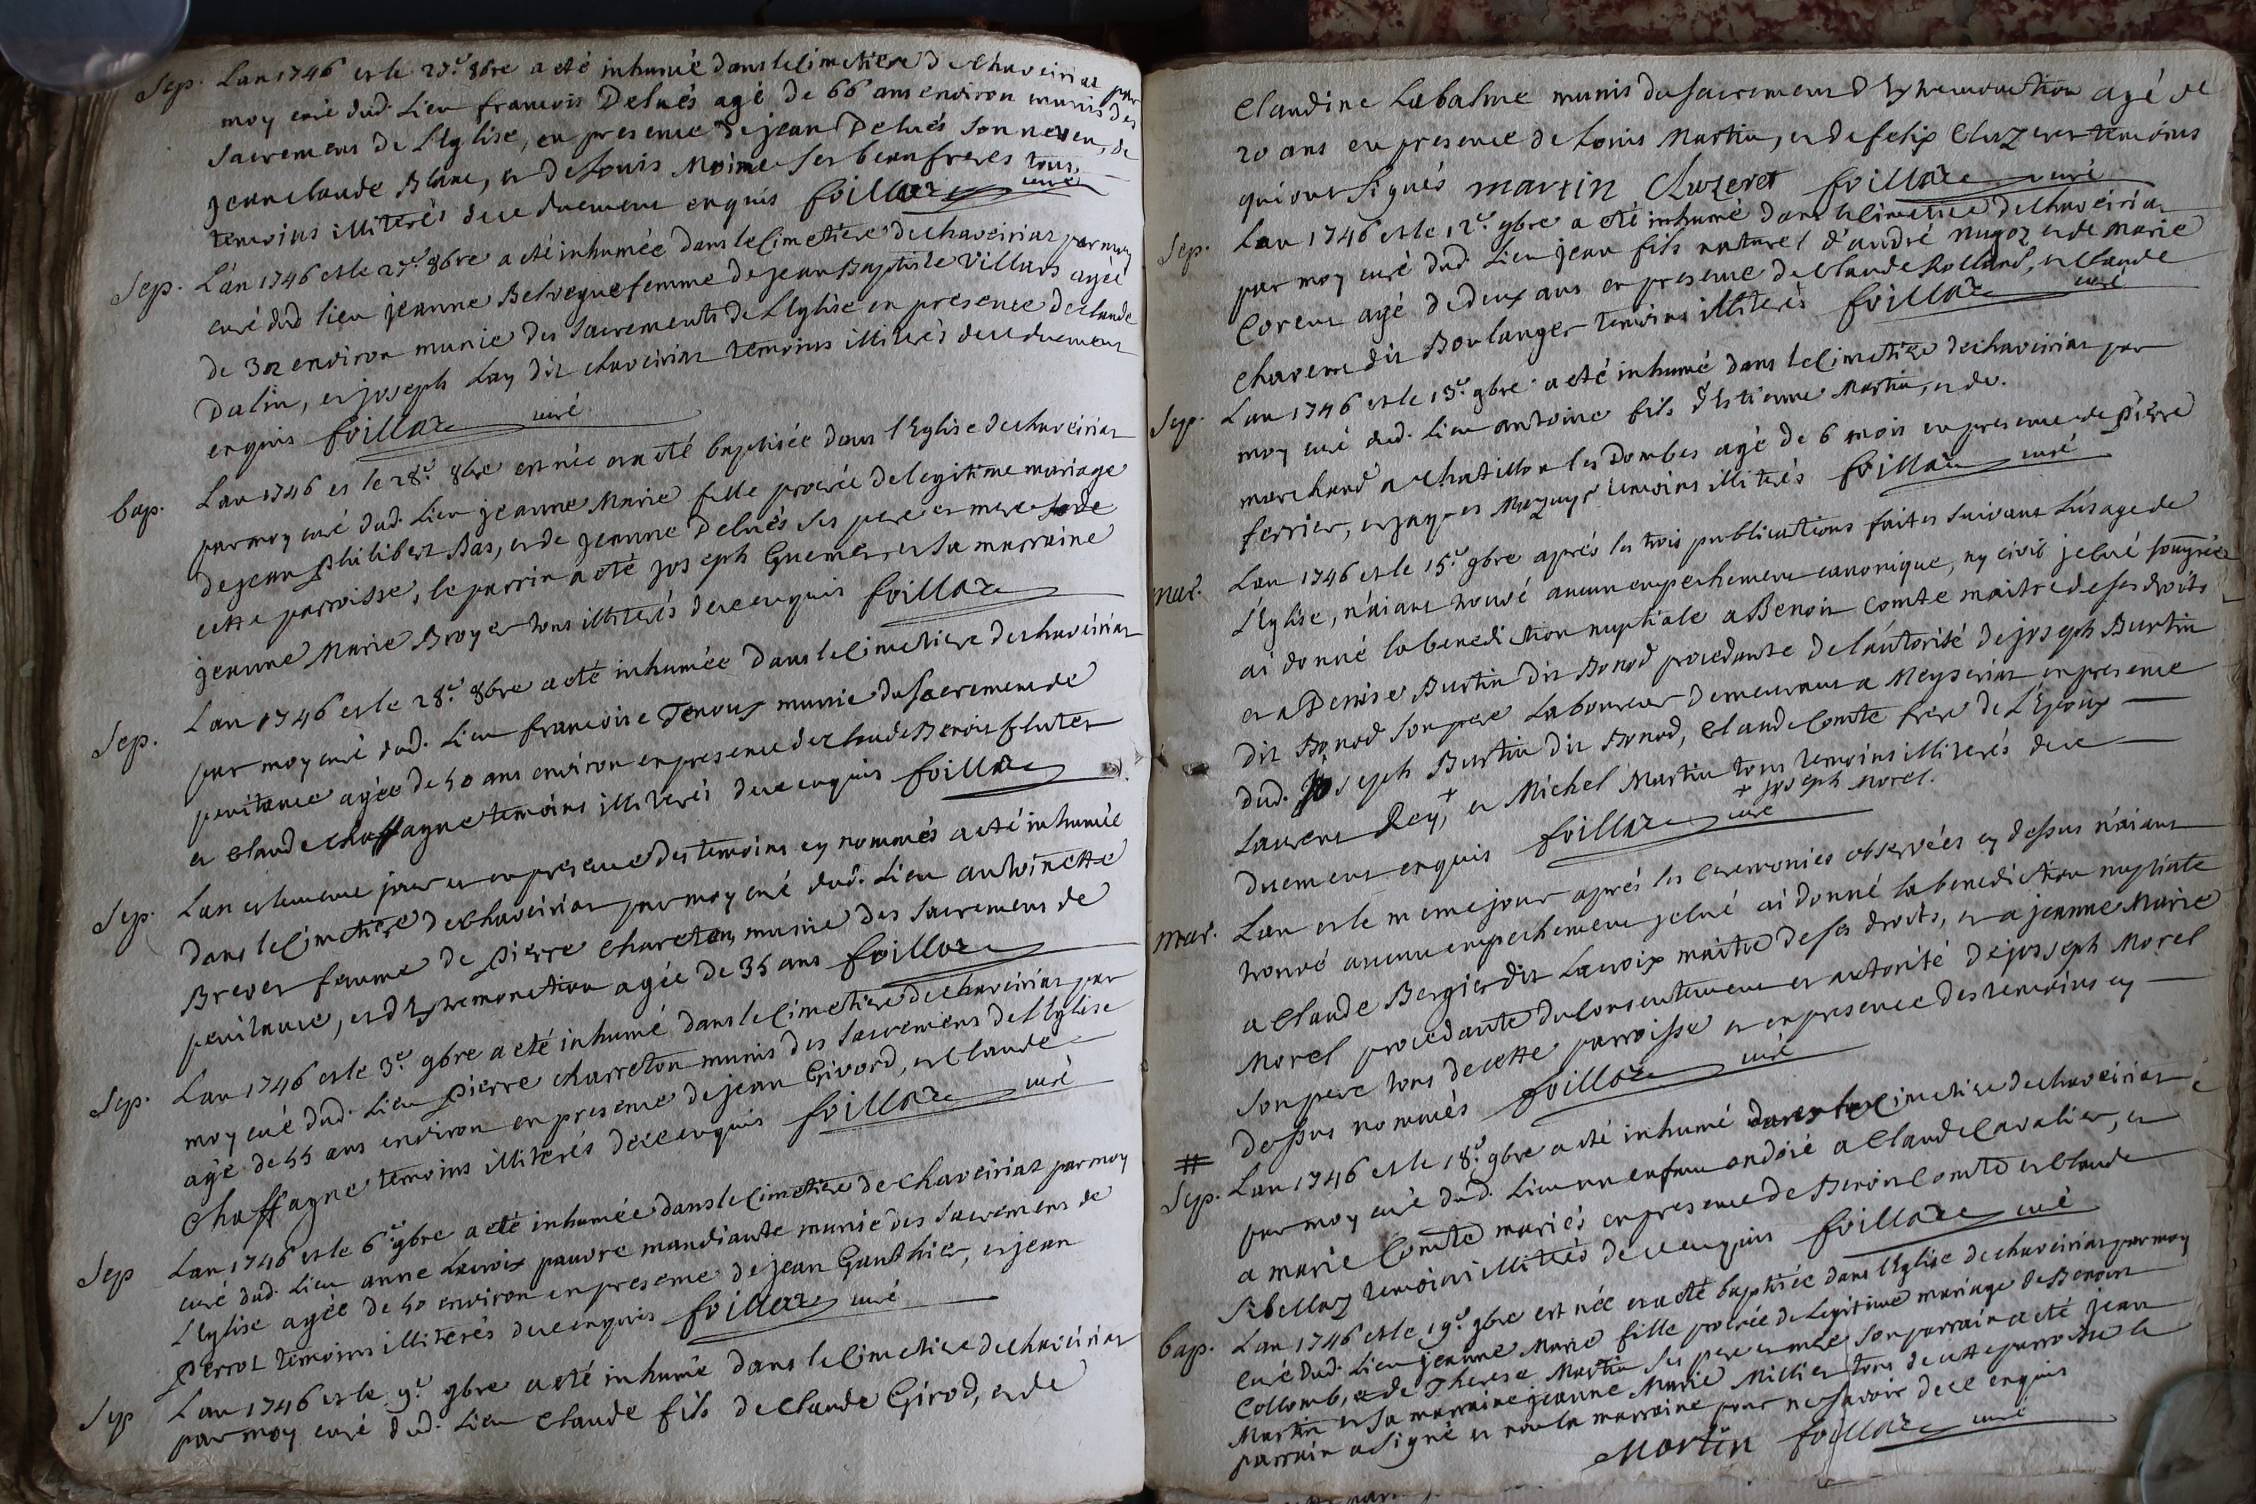 Sep. L'an 1746 et le 27e 8bre a eté inhumé dans le Cimetiere de chaveiriat par
moy curé dud. Lieu francois Delués agé de 66 ans environ munis des
sacremens de L'Eglise, en presence de jean Delués son neveu, de
jeanclaude Blanc, et de Louis Moine ses beaufreres tous
temoins illiterés de ce duement enquis foillaz curé
Sep. L'an 1746 et le 27e 8bre a eté inhumée dans le Cimetiere de chaveiriat par moy
curé dud lieu jeanne Belvegue femme de jean Baptiste Villars agée
de 30 environ munie des sacrements de L'Eglise en presence de claude
Dalin, et joseph Lay dit chaveiriat temoins illiterés de ce duement
enquis foillaz curé
bap. L'an 1746 et le 28e 8bre est née et a eté baptisée dans l'Eglise de chaveiriat
par moy curé dud. Lieu jeanne Marie fille procréé de legitime mariage
de jean philibert Bas, et de jeanne Delués ses pere et mere de
cette parroisse, le parrin a eté joseph Guemer, et sa marraine
jeanne Marie Broyer tous illiterés de ce enquis foillaz
Sep. L'an 1746 et le 28e 8bre a eté inhumée dans le Cimetiere de chaveiriat
par moy curé dud. Lieu francoise Tenoux munie du sacrement de
penitence agée de 50 ans environ en presence de claude Benoit fluter
et claude chaffagne temoins illiterés de ce enquis foillaz
Sep. L'an et le meme jour et en presence des temoins cy nommés a eté inhumée
dans le Cimetiere de chaveiriat par moy curé dud. Lieu antoinette
Brevet femme de pierre chareton, munie des sacremens de
penitence, et d'Extremonction agée de 35 ans foillaz
Sep. L'an 1746 et le 3e 9bre a eté inhumé dans le Cimetiere de chaveiriat par
moy curé dud. Lieu pierre charreton munis des sacremens de l'Eglise
agé de 55 ans environ en presence de jean Givord, et claude
chaffagne temoins illiterés de ce enquis foillaz curé
Sep L'an 1746 et le 6e 9bre a eté inhumée dans le Cimetiere de chaveiriat par moy
curé dud. Lieu anne Lacroix pauvre mandiante munie des sacremens de
L'Eglise agée de 50 environ en presence de jean Gauthier, et jean
perrot temoins illiterés de ce enquis foillaz curé
Sep L'an 1746 et le 9e 9bre a eté inhumée dans le Cimetiere de chaveiriat
par moy curé dud. Lieu claude fils de claude Girod, et de
Claudine Labalme munis du sacrement d'Extremonction agé de
20 ans en presence de Louis Martin, et de felix Cluzeret temoins
qui ont signés martin Cluzeret foillaz curé
Sep. L'an 1746 et le 12e 9bre a eté inhumé dans le Cimetiere de chaveiriat
par moy curé dud. Lieu jean fils naturel d'andré nugoz et de marie
Corent agé de deux ans en presence de claude Rolland, et claude
chavent dit Boulanger temoins illiterés foillaz curé
Sep. L'an 1746 et le 13e 9bre a eté inhumé dans le Cimetiere de chaveiriat par
moy curé dud. Lieu antoine fils d'Estienne Martin, et de
marchand a chatillon les Dombes agé de 6 mois en presence de pierre
ferrier, et jaques Mazuyr temoins illiterés foillaz curé
mar. L'an 1746 et le 15e 9bre aprés les trois publications faites suivant L'usage de
L'Eglise, n'aiant trouvé aucun empechement canonique, ny civil je curé soussigné
ai donné la benediction nuptiale a Benoit Comte maitre de ses droits
et a Denise Burtin dit Bonod procedante de L'autorité de joseph Burtin
dit Bonod son pere Laboureur demeurant a Meyseriat en presence
dud. joseph Burtin dit Bonod, claude Comte frere de L'Epoux
Laurent Rey, + et Michel Martin tous temoins illiterés de ce
+ joseph Morel.
duement enquis foillaz curé
mar. L'an et le meme jour aprés les ceremonies observées cy dessus n'aiant
trouvé aucun empechement je curé ai donné la benediction nuptiale
a claude Bergier dit Lacroix maitre de ses droits, et a jeanne Marie
Morel procedante du consentement et autorité de joseph Morel
son pere tous de cette parroisse et en presence des temoins cy
dessus nommés foillaz curé
#
Sep. L'an 1746 et le 18e 9bre a eté inhumé dans le Cimetiere de chaveiriat
par moy curé dud. Lieu un enfant ondoié a claude Cavalier, et
a marie Comte mariés en presence de Benoit Comte et claude
Sibellaz temoins illiterés de ce enquis foillaz curé
bap. L'an 1746 et le 19e 9bre est née et a eté baptisée dans l'Eglise de chaveiriat par moy
curé dud. Lieu jeanne Marie fille procréé de Legitime mariage de Benoit
Collomb, et de Therese Martin ses pere et mere son parrain a eté jean
Martin et sa marraine jeanne Marie Millier tous de cette parroisse le
parrain a signé et non la marraine pour ne savoir de ce enquis
Martin foillaz curé